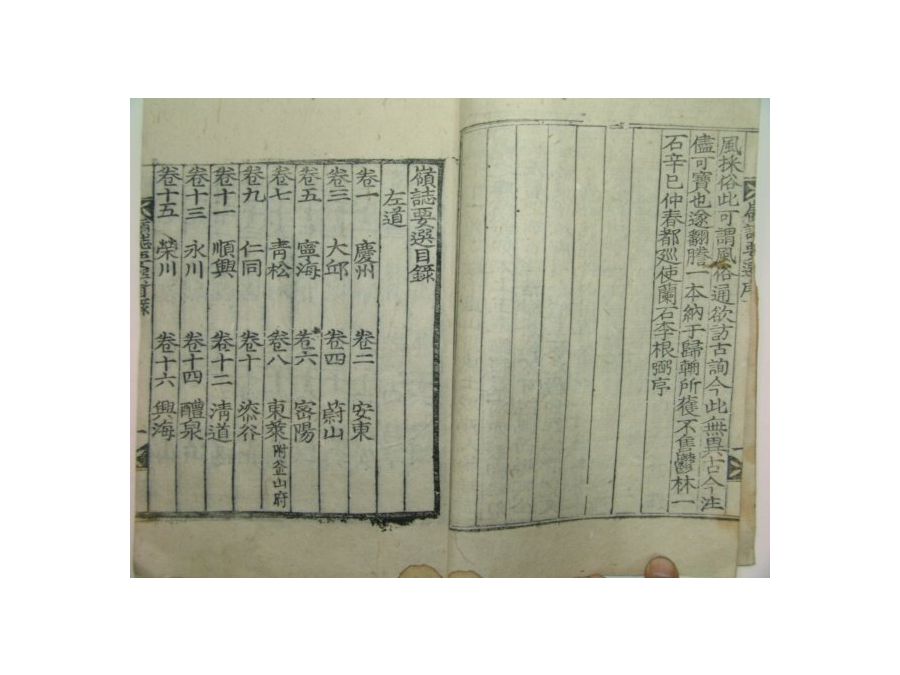 風採俗此可謂風俗通欲訪古詢今此無異古今注
儘可寶也遂翻謄一本納于歸輈所獲不售鬱林一
石辛巳仲春都巡使蘭石李根弼序
嶺誌要選目錄
左道
卷一 慶州 卷二 安東
卷三 大邱 卷四 蔚山
卷五 寧海 卷六 密陽
卷七 靑松 卷八 東萊附釜山府
卷九 仁同 卷十 漆谷
卷十一 順興 卷十二 淸道
卷十三 永川 卷十四 醴泉
卷十五 榮川 卷十六 興海